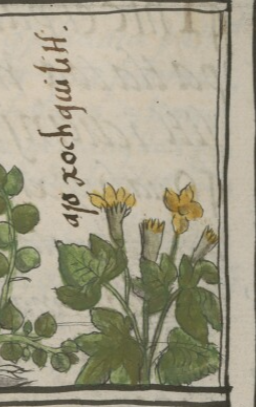 apo xochquilitl.